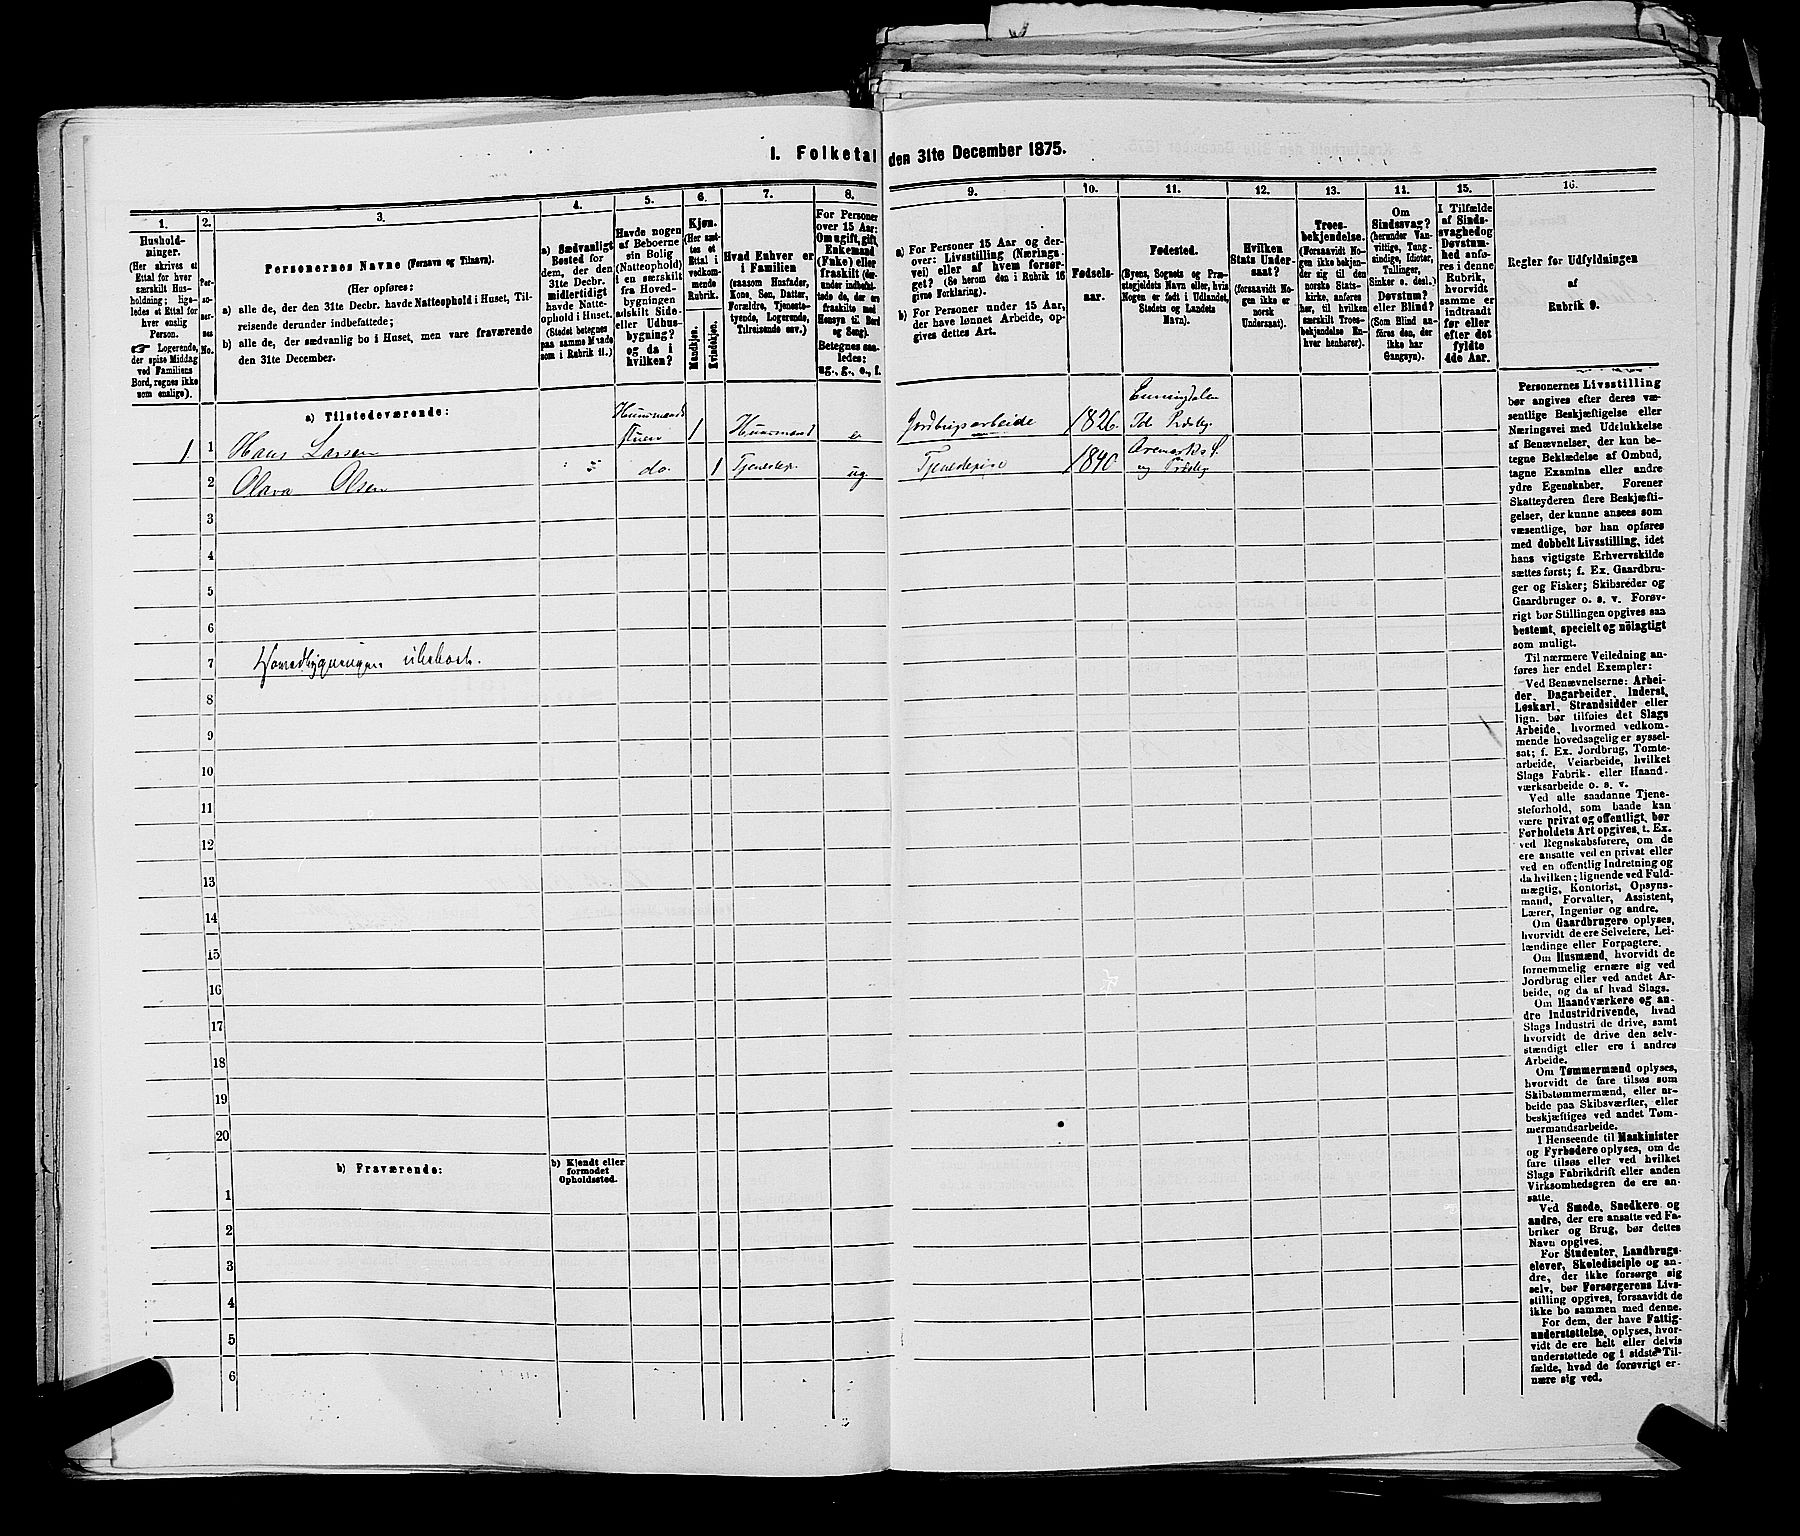 I. Folketal den 31te December 1875.
1.
Hushold-
ninger.
(Her skrives et
Ettal for hver
særskilt Hus-
holdning; lige-
ledes et Ettal for
hver enslig
Person.
Logerende,
der spise Middag
ved Familiens
Bord, regnes ikke
som enslige).
2.
Per-
so-
ner-
nes
No.
3.
Personernes Navne (Fornavn og Tilnavn).
(Her opføres:
a) alle de, der den 31te Decbr. havde Natteophold i Huset, Til-
reisende derunder indbefattede;
b) alle de, der sædvanlig bo i Huset, men vare fraværende
den 31te December.
4.
a) Sædvanligt
Bosted for
dem, der den
31te Decbr.
midlertidigt
havde Natte-
ophold i Huset.
(Stedet betegnes
paa samme Maade
som i Rubrik 11.)
5.
Havde nogen
af Beboerne
sin Bolig
(Natteophold)
i en særskilt
fra Hoved-
bygningen
adskilt Side-
eller Udhus-
bygning?
og da i
hvilken?
6.
Kjøn.
(Her sæt-
tes et
Ettal i
vedkom-
mende
Rubrik.
Mandkjøn.
Kvindekjøn.
7.
Hvad Enhver er
i Familien
(saasom Husfader,
Kone, Søn, Datter,
Forældre, Tjeneste-
tyende, Logerende,
Tilreisende osv.)
8.
For Personer
over 15 Aar:
Om ugift, gift,
Enkemand
(Enke) eller
fraskilt (der-
under indbefat-
tede de, der ere
fraskilte med
Hensyn til Bord
og Seng).
Betegnes saa-
ledes:
ug., g., e., f.
9.
a) For Personer 15 Aar og der-
over: Livsstilling (Nærings-
vei) eller af hvem forsør-
get? (Se herom den i Rubrik 16
givne Forklaring).
b) For Personer under 15 Aar,
der have lønnet Arbeide, op-
gives dettes Art.
10.
Fødsels-
aar.
11.
Fødested.
(Byens, Sognets og Præ-
stegjeldets Navn eller, hvis
Nogen er født i Udlandet,
Stedets og Landets
Navn).
12.
Hvilken
Stats Under-
saat?
(forsaavidt No-
gen ikke er
norsk
Undersaat).
13.
Troes-
bekjendelse.
(Forsaavidt No-
gen ikke bekjen-
der sig til den
norske Stats-
kirke, anføres
her, til hvilken
særskilt Troes-
bekjendelse En-
hver henhører).
11.
Om
Sindssvag?
(herunder Van-
vittige, Tung-
sindige, Idioter,
Tullinger,
Sinker o. desl.)
Døvstum?
eller Blind?
(Som Blind an-
føres den, der
ikke har
Gangsyn).
15.
I Tilfælde
af Sinds-
svaghed og
Døvstum-
hed anfø-
res i denne
Rubrik,
hvorvidt
samme er
indtraadt
før eller
efter det
fyldte
4de Aar.
16.
Regler for Udfyldningen
af
Rubrik 9.
a) Tilstedeværende:
1. 1 Hans Larsen Huusmands stuen 1 Huusmand e Jordbrugsarbeide 1826. Enningdalen Id Præstg.
2 Olava Olsen do. 1 Tjenestep. ug Tjenestepige 1840 Aremarks S. og Præstg
3
4
5
6
7 Hovedbygningen ubeboet.
8
9
10
11
12
13
14
15
16
17
18
19
20
b) Fraværende:
b) Kjendt eller
formodet
Opholdssted.
1
2
3
4
5
6
Personernes Livsstilling
bør angives efter deres væ-
sentlige Beskjæftigelse eller
Næringsvei med Udelukkelse
af Benævnelser, der kun be-
tegne Beklædelse af Ombud,
tagne Examina eller andre
ydre Egenskaber. Forener
Skatteyderen flere Beskjæfti-
gelser, der kunne ansees som
væsentlige, bør han opføres
med dobbelt Livsstilling, idet
hans vigtigste Erhvervskilde
sættes først; f. Ex. Gaardbru-
ger og Fisker; Skibsreder og
Gaardbruger o. s. v. Forøv-
rigt bør Stillingen opgives saa
bestemt, specielt og nöiagtigt
som muligt.
Til nærmere Veiledning an-
føres her endel Exempler:
Ved Benævnelserne: Arbei-
der, Dagarbeider, Inderst,
Løskarl, Strandsidder eller
lign. bør tilføies det Slags
Arbeide, hvormed vedkom-
mende hovedsagelig er syssel-
sat; f. Ex. Jordbrug, Tomte-
arbeide, Veiarbeide, hvilket
Slags Fabrik- eller Haand-
værksarbeide o. s. v.
Ved alle saadanne Tjene-
steforhold, som baade kan
være privat og offentligt, bør
Forholdets Art opgives, t. Ex.
ved Regnskabsførere, om de
ere ansatte ved en privat eller
ved en offentlig Indretning og
da hvilken; lignende ved Fuld-
mægtig, Kontorist, Opsyns-
mand, Forvalter, Assistent,
Lærer, Ingeniør og andre.
Om Gaardbrugere oplyses,
hvorvidt de ere Selveiere, Lei-
lændinge eller Forpagtere.
Om Husmænd, hvorvidt de
fornemmelig ernære sig ved
Jordbrug eller ved andet Ar-
beide, og da af hvad Slags.
Om Haandværkere og an-
dre Industridrivende, hvad
Slags Industri de drive, samt
hvorvidt de drive den selv-
stændigt eller ere i andres
Arbeide.
Om Tømmermænd oplyses,
hvorvidt de fare tilsøs som
Skibstømmermænd, eller ar-
beide paa Skibsværfter, eller
beskjæftiges ved andet Tøm-
mermandsarbeide.
I Henseende til Maskinister
og Fyrbødere oplyses, om de
fare tilsøs eller ved hvilket
Slags Fabrikdrift eller anden
Virksomhedsgren de ere an-
satte.
Ved Smede, Snedkere og
andre, der ere ansatte ved Fa-
briker og Brug, bør dettes
Navn opgives.
For Studenter, Landbrugs-
elever, Skoledisciple og an-
dre, der ikke forsørge sig
selv, bør Forsørgerens Livs-
stilling opgives, forsaavidt de
ikke bo sammen med denne.
For dem, der have Fattig-
understøttelse, oplyses, hvor-
vidt de ere helt eller delvis
understøttede og i sidste Til-
fælde, hvad de forøvrigt er-
nære sig ved.